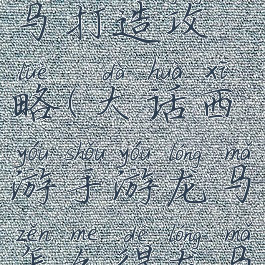 马打造攻
lüè dà huà xī
略(大话西
yóu shǒu yóu lóng mǎ
游手游龙马
zěn me dé lóng mǎ